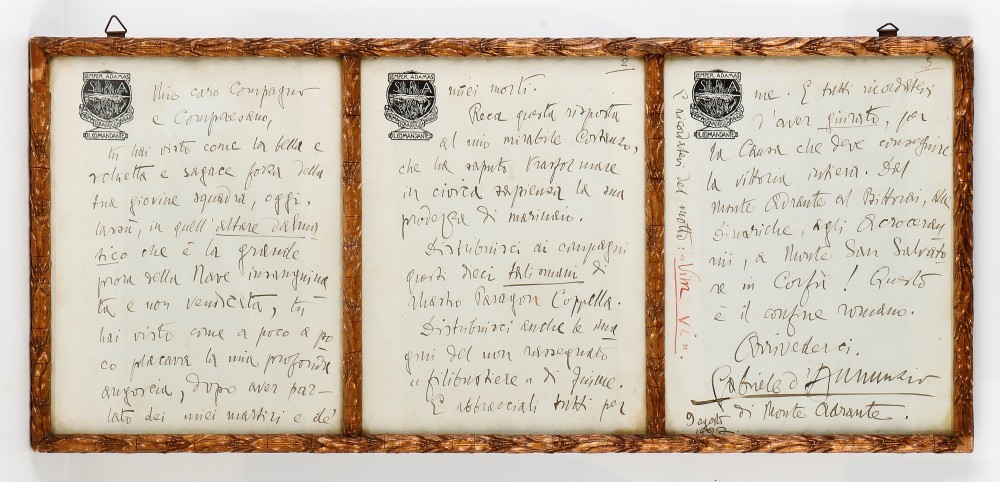 SEMPER ADAMAS
IL COMANDANTE
Mio caro Compagno
e Compresano,
tu hai visto come la bella e
schietta e sagace forza della
tua giovine squadra, oggi,
lassù, in quell'altare dalma
tico che è la grande
prora della Nave insanguina
ta e non vendicata, tu
hai visto come a poco a po
co placava la mia profonda
angoscia, dopo aver par
lato dei miei martiri e de'
2
SEMPER ADAMAS
IL COMANDANTE
miei morti.
Reca questa risposta
al mio mirabile Costanzo,
che ha saputo trasformare
in civica sapienza la sua
prodezza di marinaio.
Distribuisci ai compagni
questi dieci talismani di
Mastro Paragon Coppella.
Distribuisci anche le ima
gini del non rassegnato
"filibustiere" di Fiume.
E abbracciali tutti per
3
SEMPER ADAMAS
IL COMANDANTE
me. E tutti ricordatevi
d'aver giurato, per
la Causa che deve conseguire
la vittoria intera. Dal
Monte Adrante al Bittorai, alle
Dinariche, agli Acrocerau
ni, a Monte San Salvato
re in Corfù! Questo
è il confine romano.
Arrivederci.
Gabriele d'Annunzio
di Monte Adrante.
9 agosto
E ricordatevi del motto: